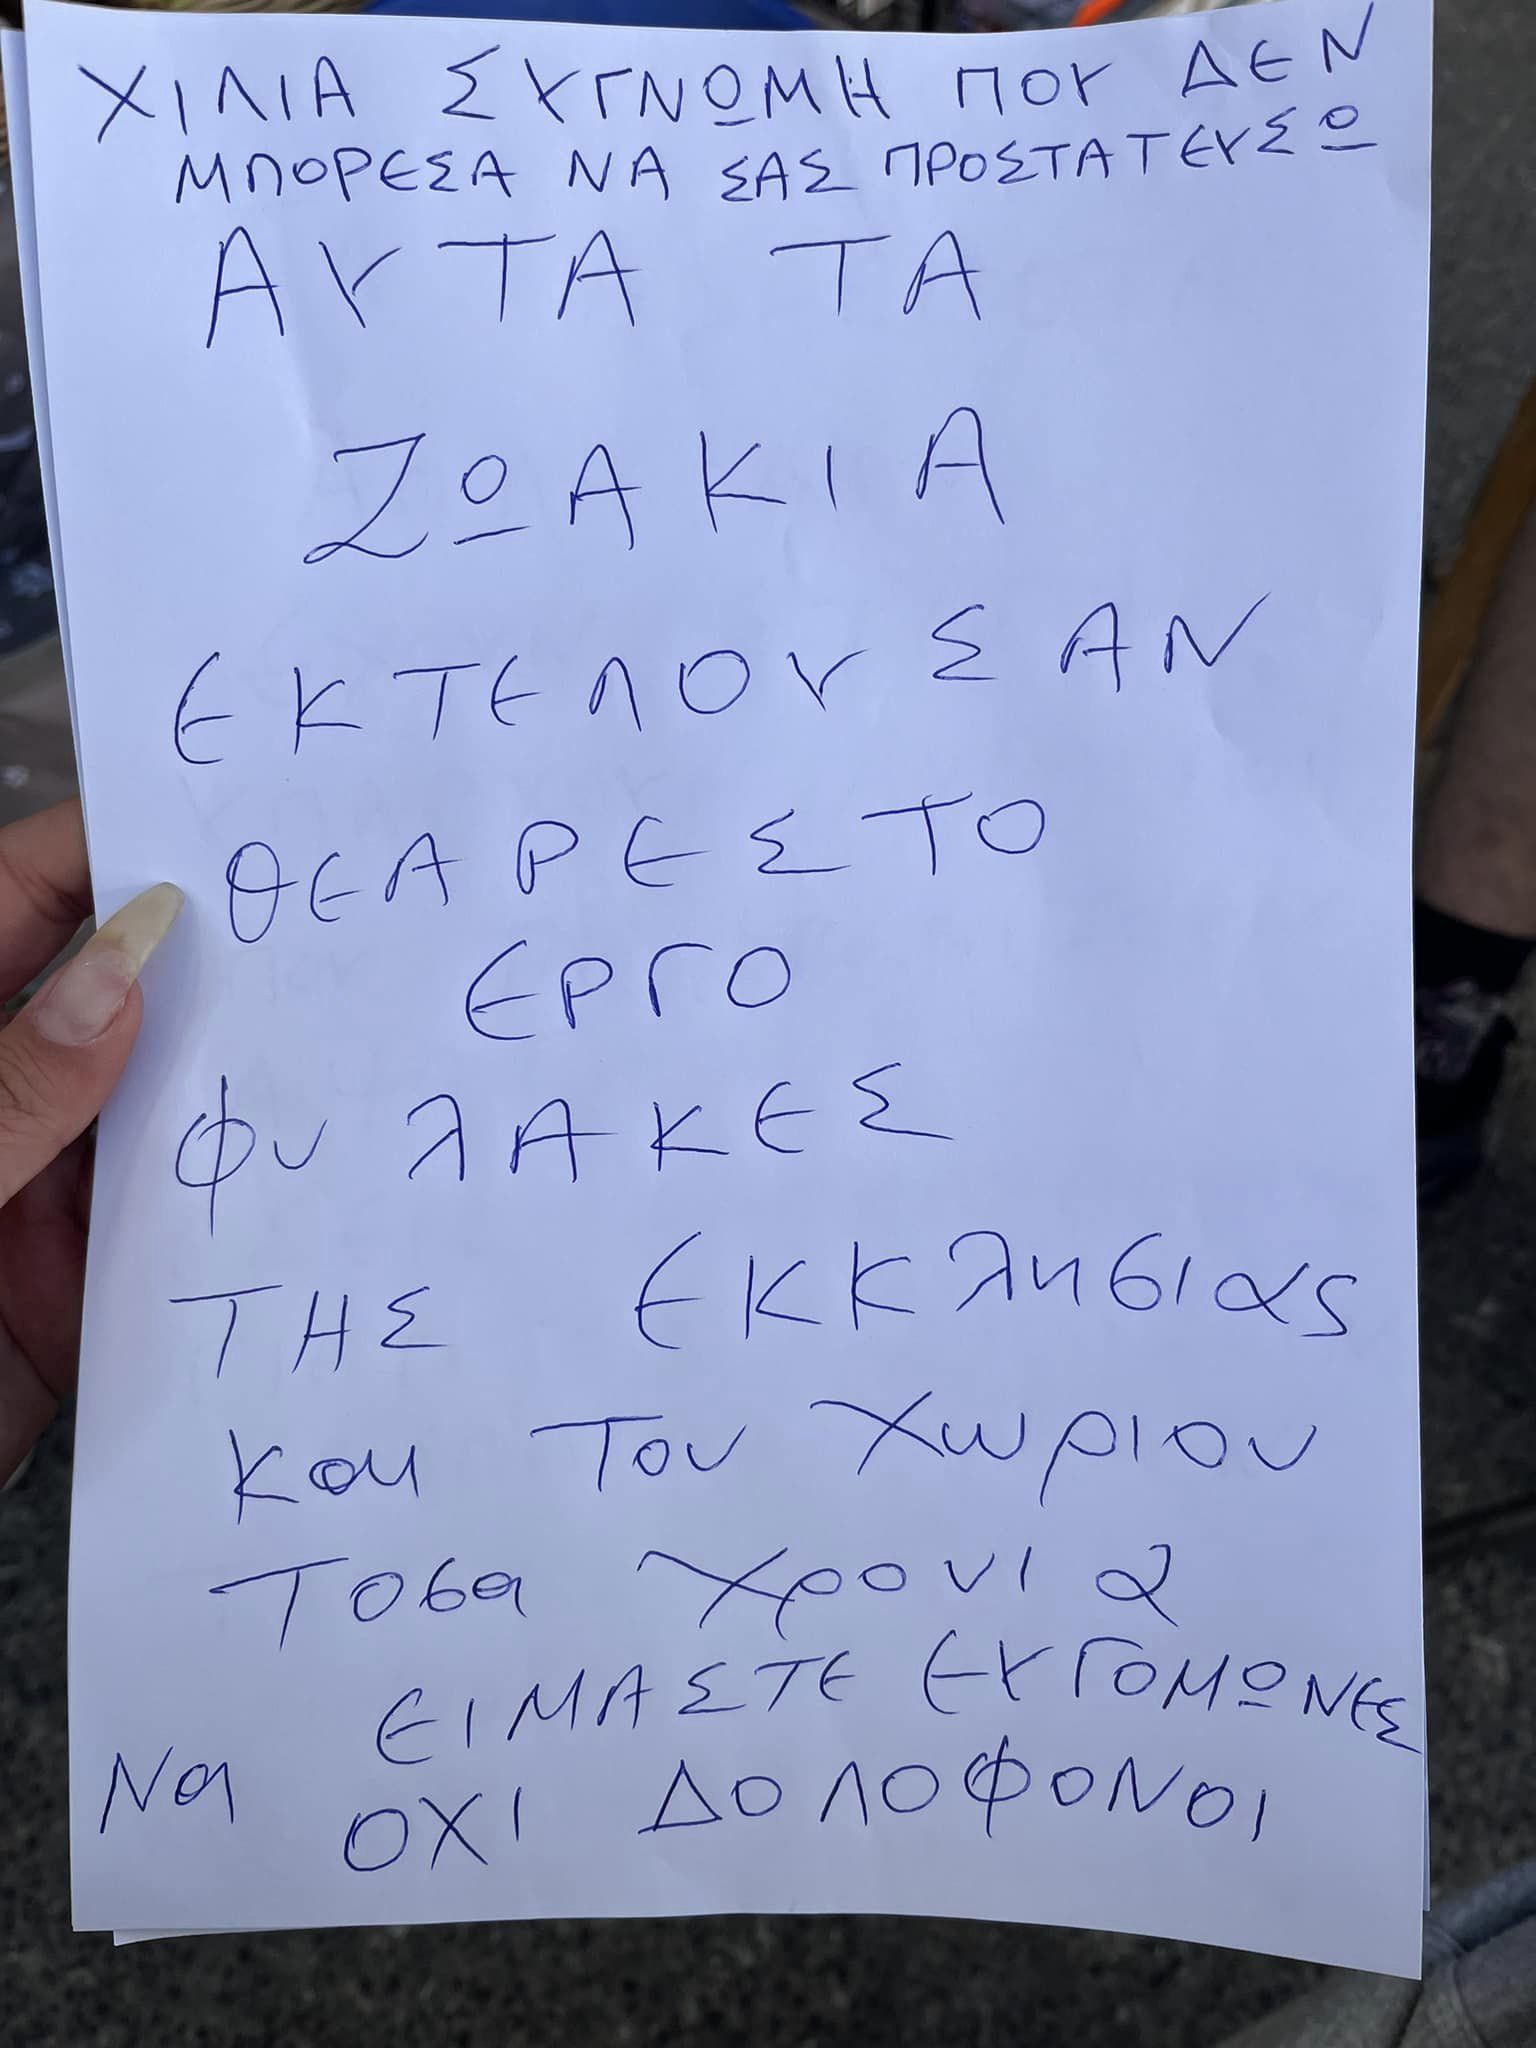 ΧΙΛΙΑ ΣΥΓΝΩΜΗ ΠΟΥ ΔΕΝ
ΜΠΟΡΕΣΑ ΝΑ ΣΑΣ ΠΡΟΣΤΑΤΕΥΣΩ
ΑΥΤΑ ΤΑ
ΖΩΑΚΙΑ
ΕΚΤΕΛΟΥΣΑΝ
ΘΕΑΡΕΣΤΟ
ΕΡΓΟ
ΦυλΑΚΕΣ
ΤΗΣ ΕΚΚλησιας
και Του Χωριου
Τοσα χρονια
ΕΙΜΑΣΤΕ ΕΥΓΟΜΩΝΕΣ
Να ΟΧΙ ΔΟΛΟΦΟΝΟΙ